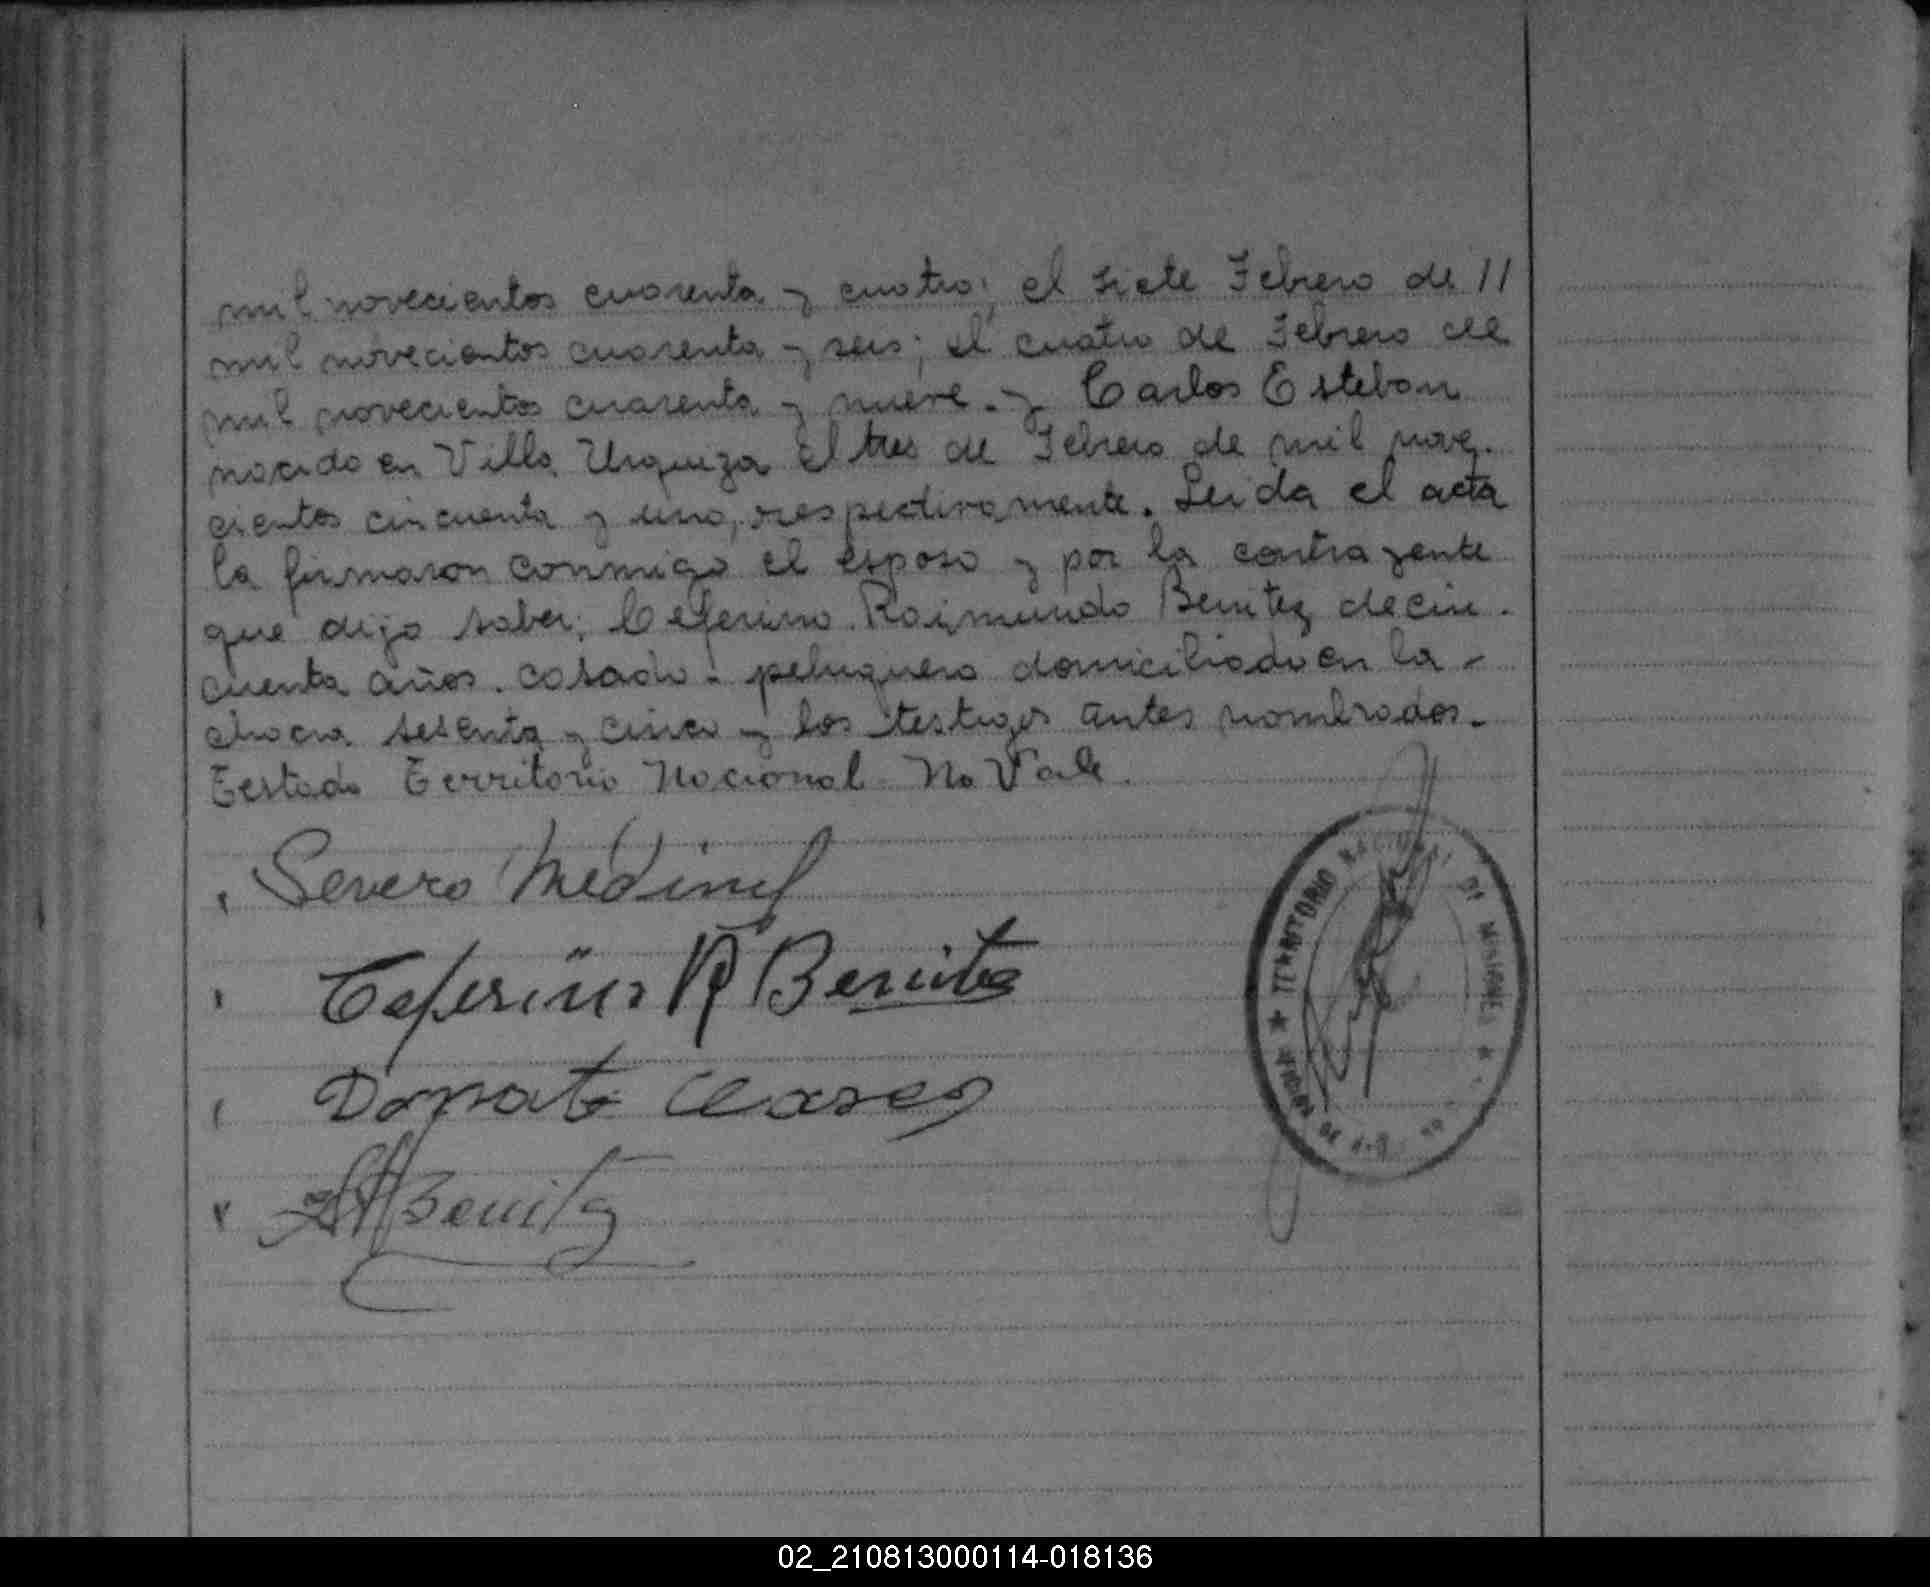 mil novecientos cuarenta y cuatro; el siete Febrero de //
mil novecientos cuarenta y seis; el cuatro de Febrero de
mil novecientos cuarenta y nueve. y Carlos Esteban
nacido en Villa Urquiza el tres de Febrero de mil nove.
cientos cincuenta y uno, respectivamente. Leida el acta
la firmaron conmigo el esposo y por la contrayente
que dijo saber; Ceferino Raimundo Benitez de cin.
cuenta años. casado - peluquero domiciliado en la -
chacra sesenta y cinco y los testigos antes nombrados.
Testado Territorio Nacional No Vale.
Severo Medina
Ceferino R Benitez
Donato
Benitez
★ TERRITORIO NACIONAL DE MISIONES ★
02_210813000114-018136